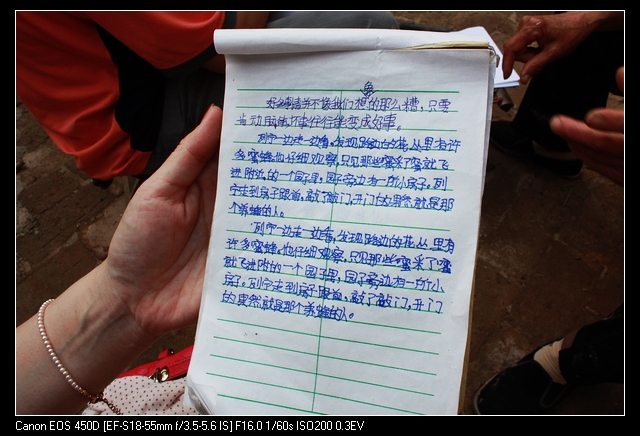 并不像我们想的那么糟，只要
变成好事。
列宁一边走一边看，发现路边的花丛里有许
多蜜蜂，他仔细观察，只见那些蜜采了蜜就飞
进附近的一个园子里，园子旁边有一所小房子。列
宁走到房子跟前，敲了敲门，开门的果然就是那
个养蜂的人。
列宁一边走一边看，发现路边的花丛里有
许多蜜蜂，他仔细观察，只见那些蜜采了蜜
就飞进附近的一个园子里，园子旁边有一所小
房子。列宁走到房子跟前，敲了敲门，开门
的果然就是那个养蜂的人。
Canon EOS 450D [EF-S18-55mm f/3.5-5.6 IS] F16.0 1/60s ISO200 0.3EV